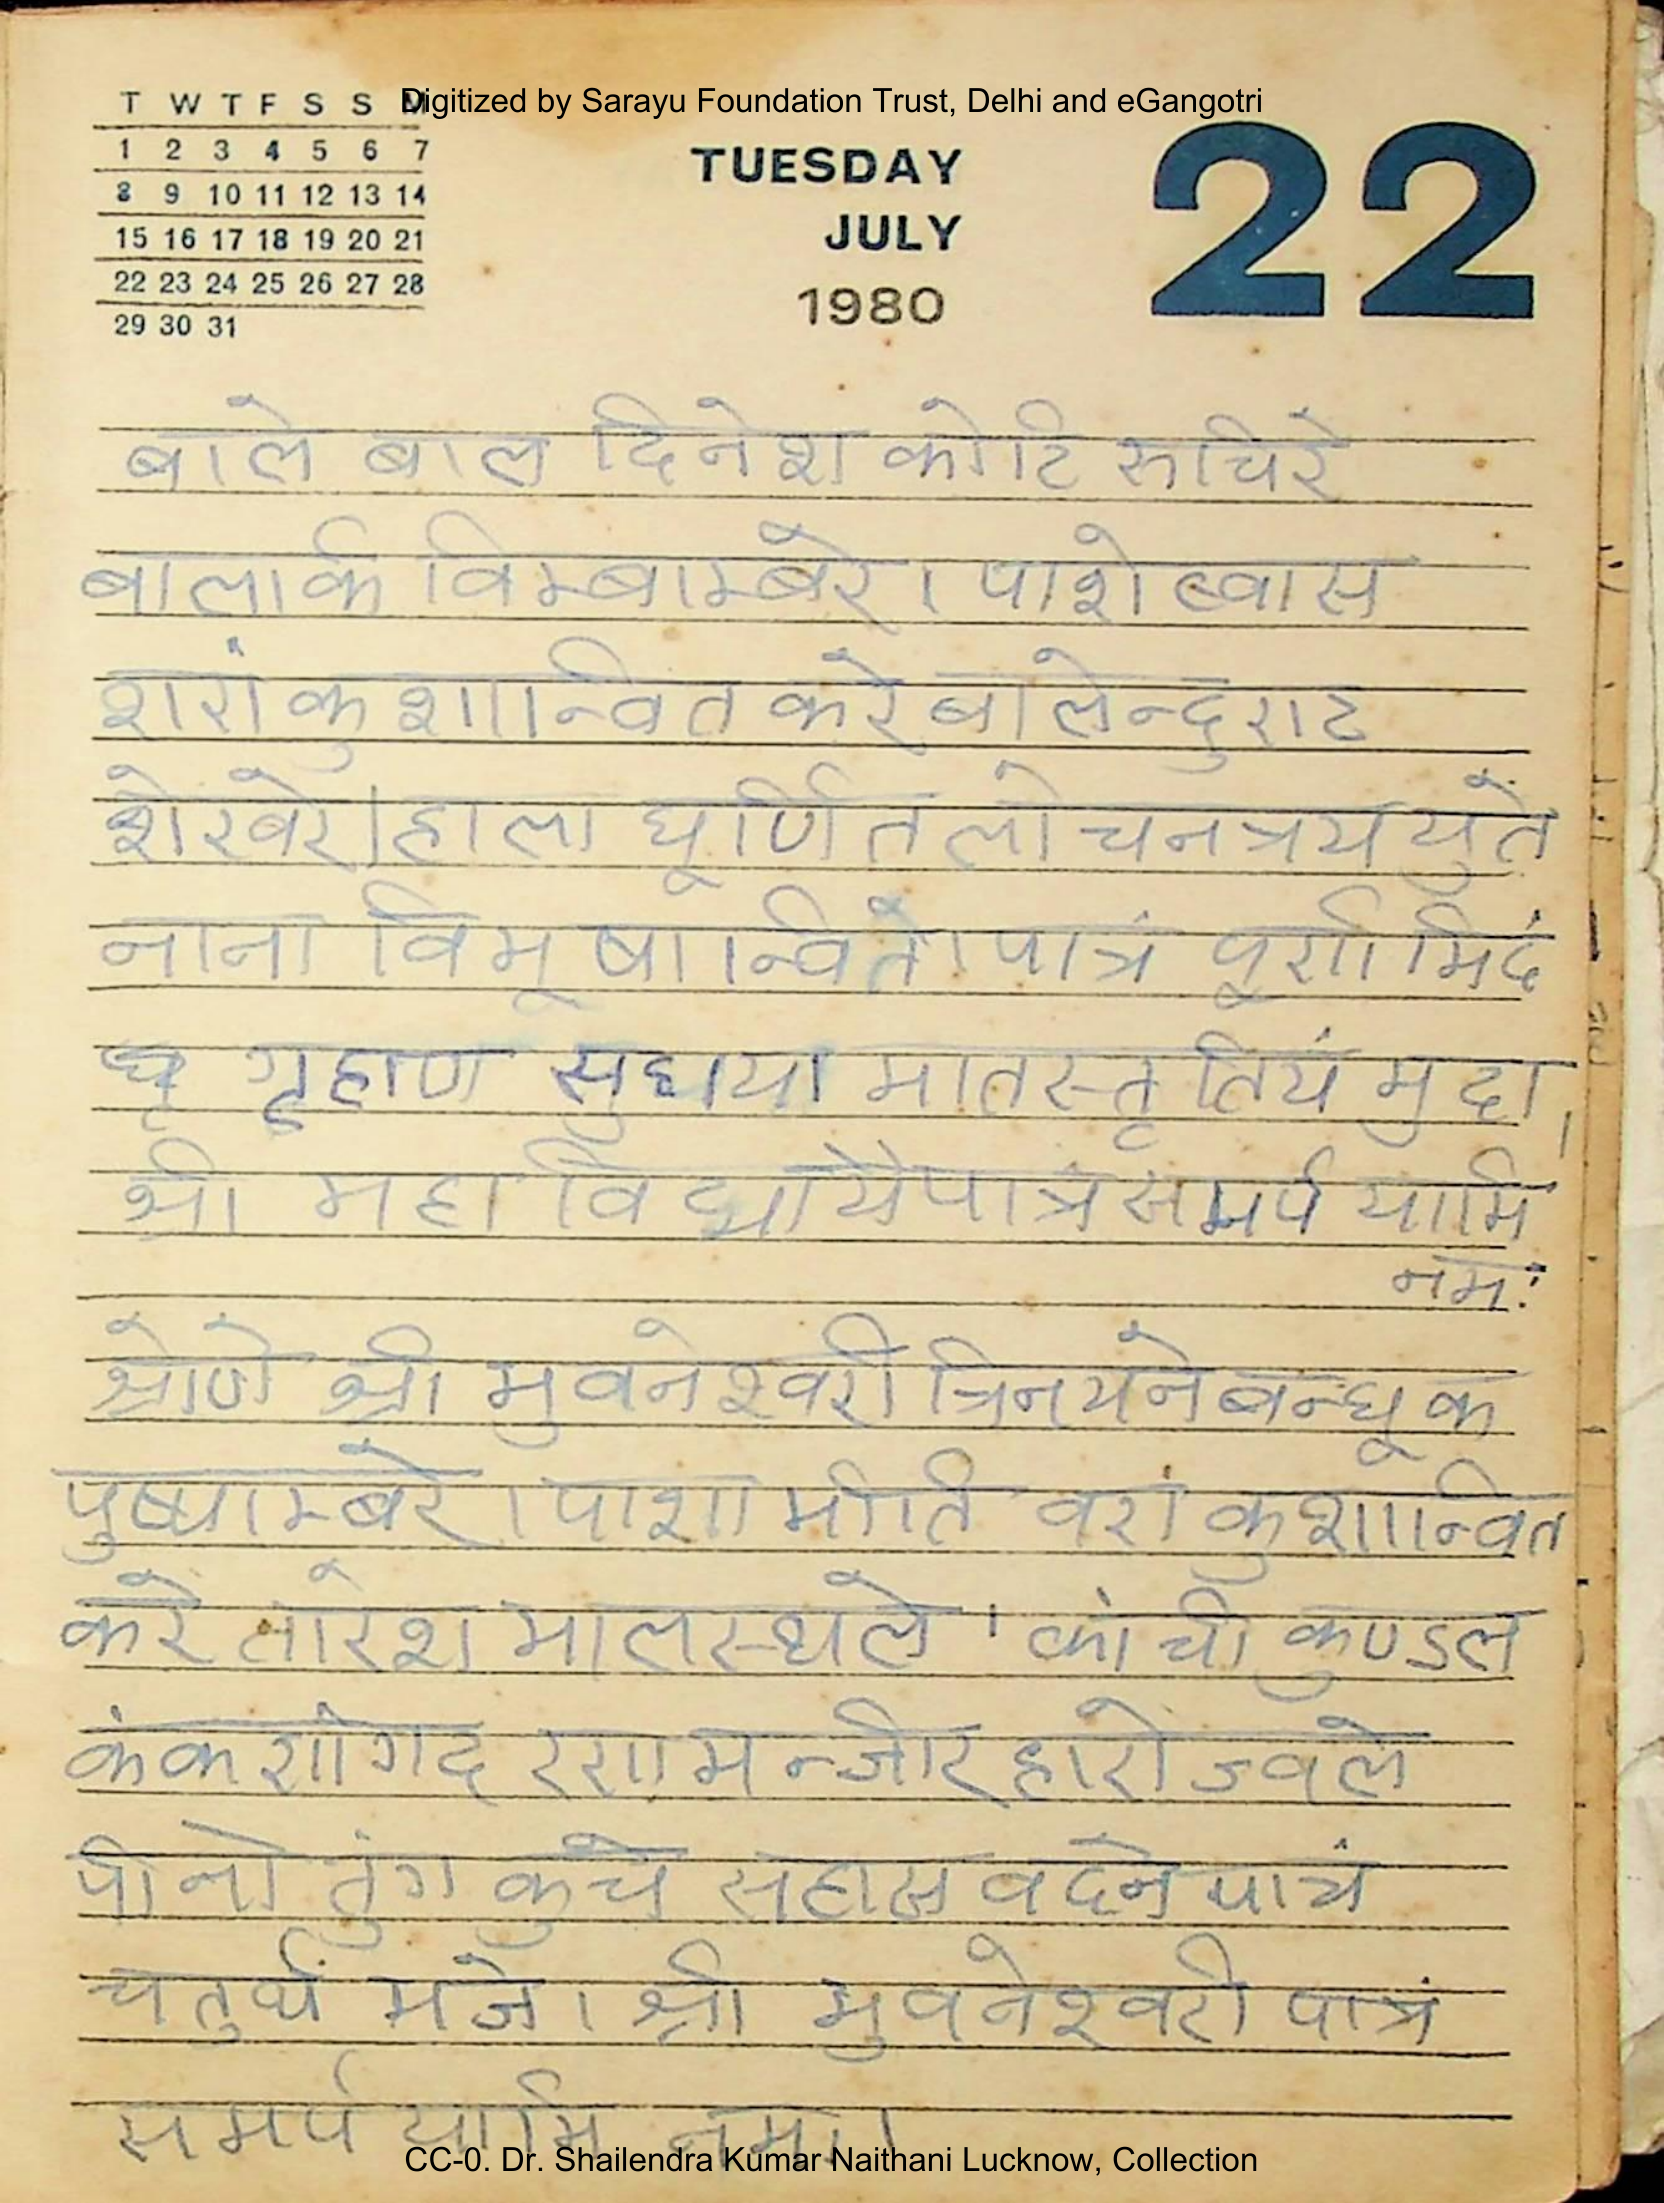 Digitized by Sarayu Foundation Trust, Delhi and eGangotri
T W T F S S M
1 2 3 4 5 6 7
8 9 10 11 12 13 14
15 16 17 18 19 20 21
22 23 24 25 26 27 28
29 30 31
TUESDAY
JULY
1980
22
बाले बाल दिनेश कोटि रुचिरे
बालार्क विम्बाम्बरे । पाशेष्वास
शरांकुशान्वित करे बालेन्दुराट
शेखरे । हाला घूर्णित लोचनत्रय युते
नाना विभूषान्विते । पात्रं पूर्णमिदं
गृहाण सुधया मातस्तृतियं मुदा,
श्री महाविद्यायै पात्रं समर्पयामि
नमः
श्रोणे श्री भुवनेश्वरी त्रिनयने बन्धूक
पुष्पाम्बरे । पाशाभीति वरांकुशान्वित
करे तारेश भालस्थले । कांची कुण्डल
कंकणांगद रणामन्जीर हारोज्वले
पीनो तुंग कुचे सहास वदने पात्रं
चतुर्थं भजे । श्री भुवनेश्वरी पात्रं
समर्पयामि नमः।
CC-0. Dr. Shailendra Kumar Naithani Lucknow, Collection